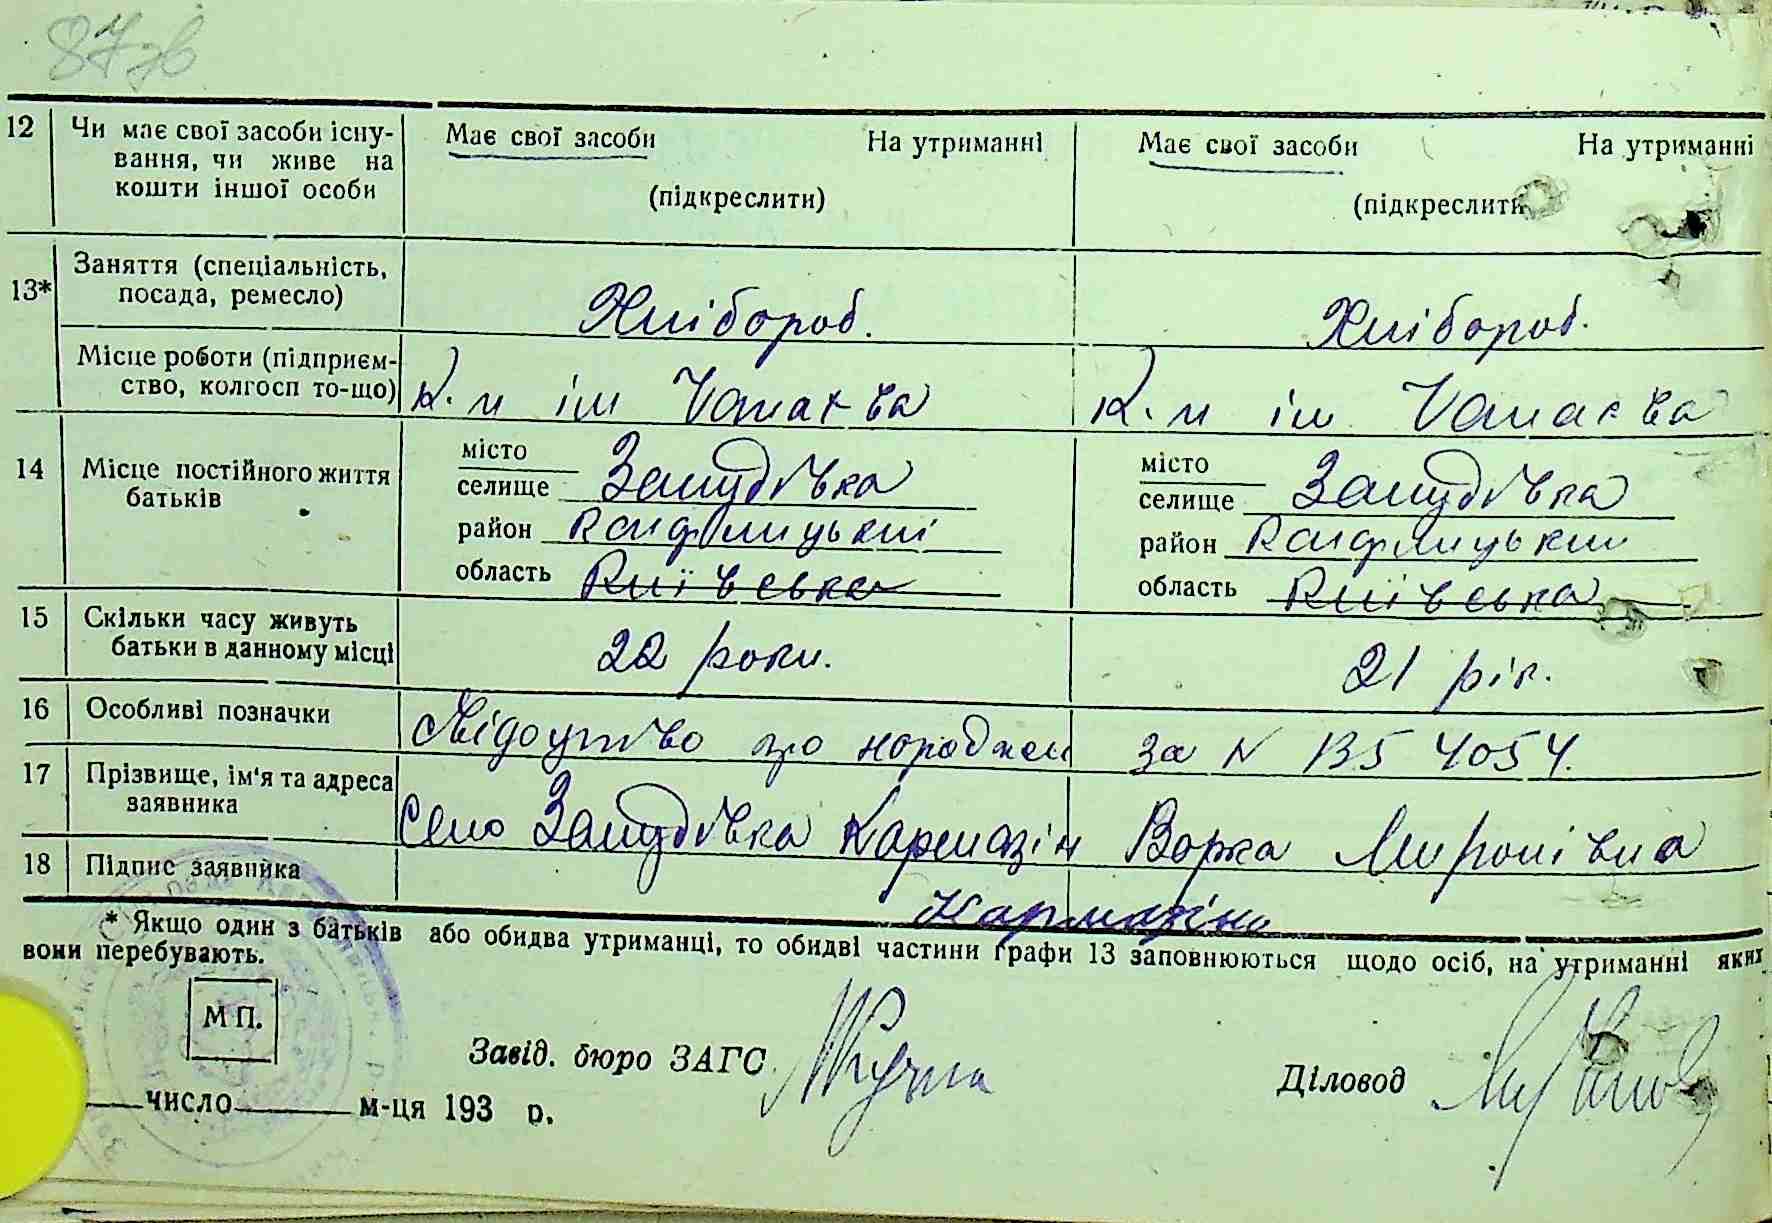 87 зв
12 Чи має свої засоби існу- Має свої засоби На утриманні Має свої засоби На утриманні
вання, чи живе на
кошти іншої особи (підкреслити) (підкреслити
13* Заняття (спеціальність,
посада, ремесло) Хлібороб. Хлібороб.
Місце роботи (підприєм-
ство, колгосп то-що) К. г ім К. г ім
14 Місце постійного життя місто місто
батьків селище Замудівка селище Замудівка
район район
область Київська область Київська
15 Скільки часу живуть
батьки в данному місці 22 роки. 21 рік.
16 Особливі позначки Свідоцтво про народжен за N 4054.
17 Прізвище, ім'я та адреса
заявника Село Замудівка Кармазін Варка Миронівна
18 Підпис заявника Кармазіна
* Якщо один з батьків або обидва утриманці, то обидві частини графи 13 заповнюються щодо осіб, на утриманні яких
вони перебувають.
М П.
Завід. бюро ЗАГС
Діловод
число м-ця 193 р.